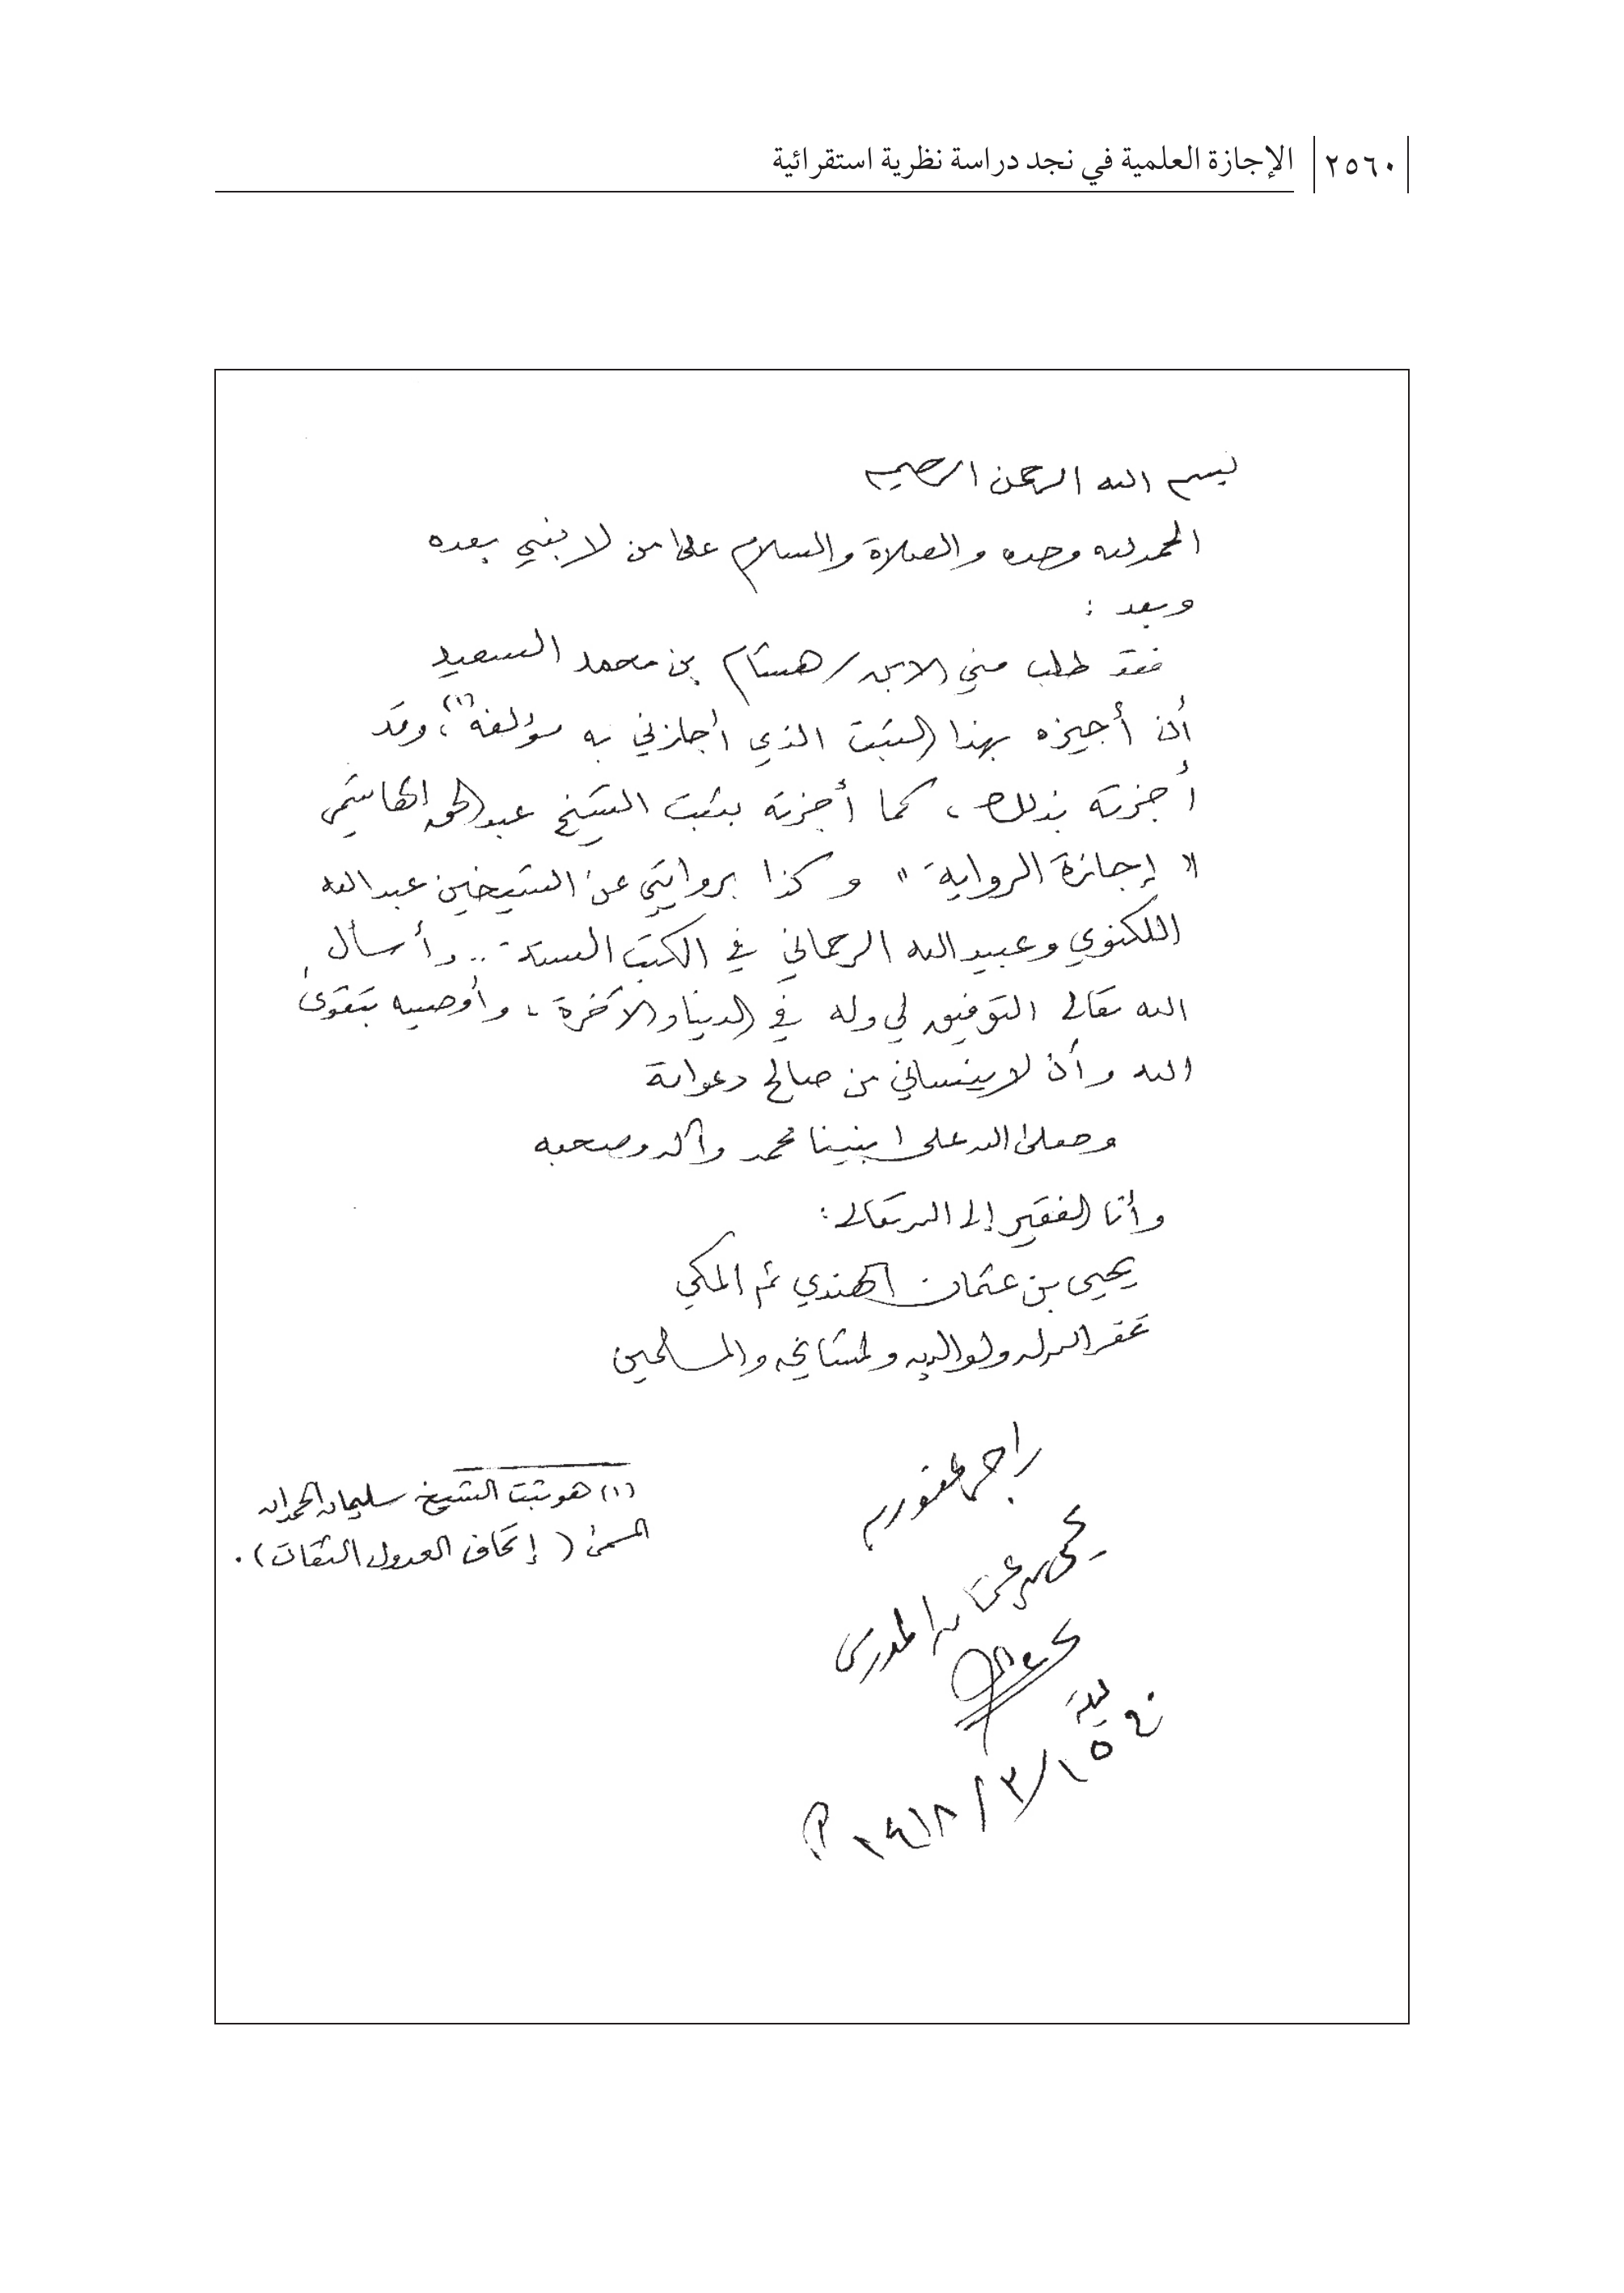 ٢٥٦٠ الإجازة العلمية في نجد دراسة نظرية استقرائية
بسم الله الرحمن الرحيم
الحمد لله وحده والصلاة والسلام على من لا نبي بعده
وبعد :
فقد طلب مني الابن / هشام بن محمد السعيد
أن أجيزه بهذا الثبت الذي أجازني به مؤلفه (١)، وقد
أجزته بذلك، كما أجزته بثبت الشيخ عبدالحق الهاشمي
" إجازة الرواية " وكذا بروايتي عن الشيخين عبدالله
اللكنوي وعبيد الله الرحماني في الكتب الستة .. وأسأل
الله تعالى التوفيق لي وله في الدنيا والآخرة، وأوصيه بتقوى
الله وأن لا ينساني من صالح دعواته
وصلى الله على نبينا محمد وآله وصحبه
وأنا الفقير إلى الله تعالى :
يحيى بن عثمان الهندي ثم المكي
غفر الله له ولوالديه ولمشايخه والمسلمين
يحيى بن عثمان المدرس
ليلة
في ١٥/٣/١٤١٨ هـ
(١) هو ثبت الشيخ سليمان الحمدان
المسمى ( إتحاف العدول الثقات ) .